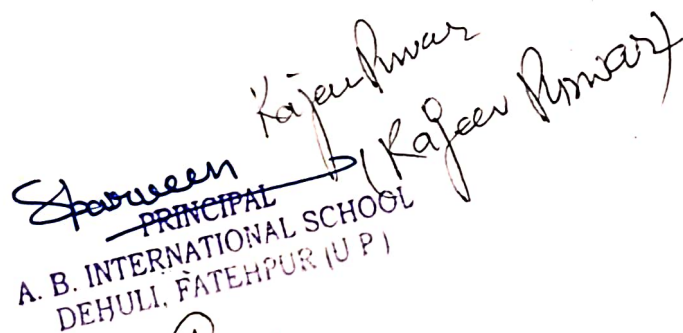 Rajeev Kumar
(Rajeev Kumar)
Sparveen
PRINCIPAL
A. B. INTERNATIONAL SCHOOL
DEHULI, FATEHPUR (U P)